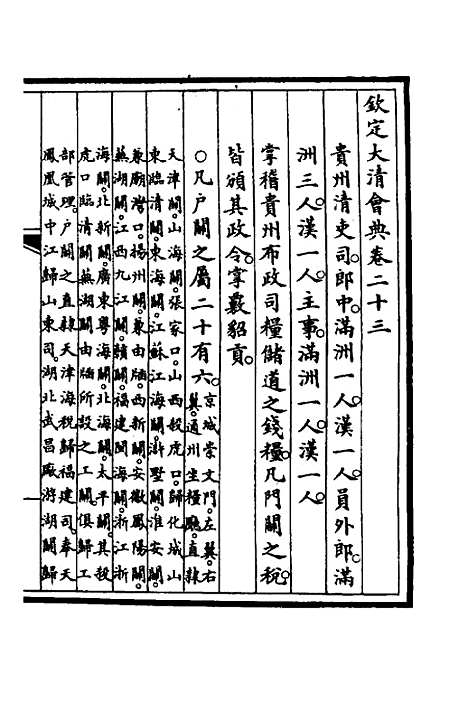 欽定大清會典卷二十三
貴州清吏司。郎中。滿洲一人。漢一人。員外郎。滿
洲三人。漢一人。主事。滿洲一人。漢一人
掌稽貴州布政司糧儲道之錢糧。凡門關之稅。
皆頒其政令。掌覈貂貢。
○凡戶關之屬二十有六。
京城崇文門。左翼。右
翼。通州坐糧廳。直隸
天津關。山海關。張家口。山西殺虎口。歸化城。山
東臨清關。東海關。江蘇江海關。滸墅關。淮安關。
兼廟灣口。揚州關。兼由牐。西新關。安徽鳳陽關。
蕪湖關。江西九江關。贛關。福建閩海關。浙江浙
海關。北新關。廣東粵海關。北海關。太平關。其殺
虎口臨清關蕪湖關由牐所設之工關。俱歸工
部管理。戶關之直隸天津海稅歸福建司。奉天
鳳凰城中江歸山東司。湖北武昌廠游湖關歸